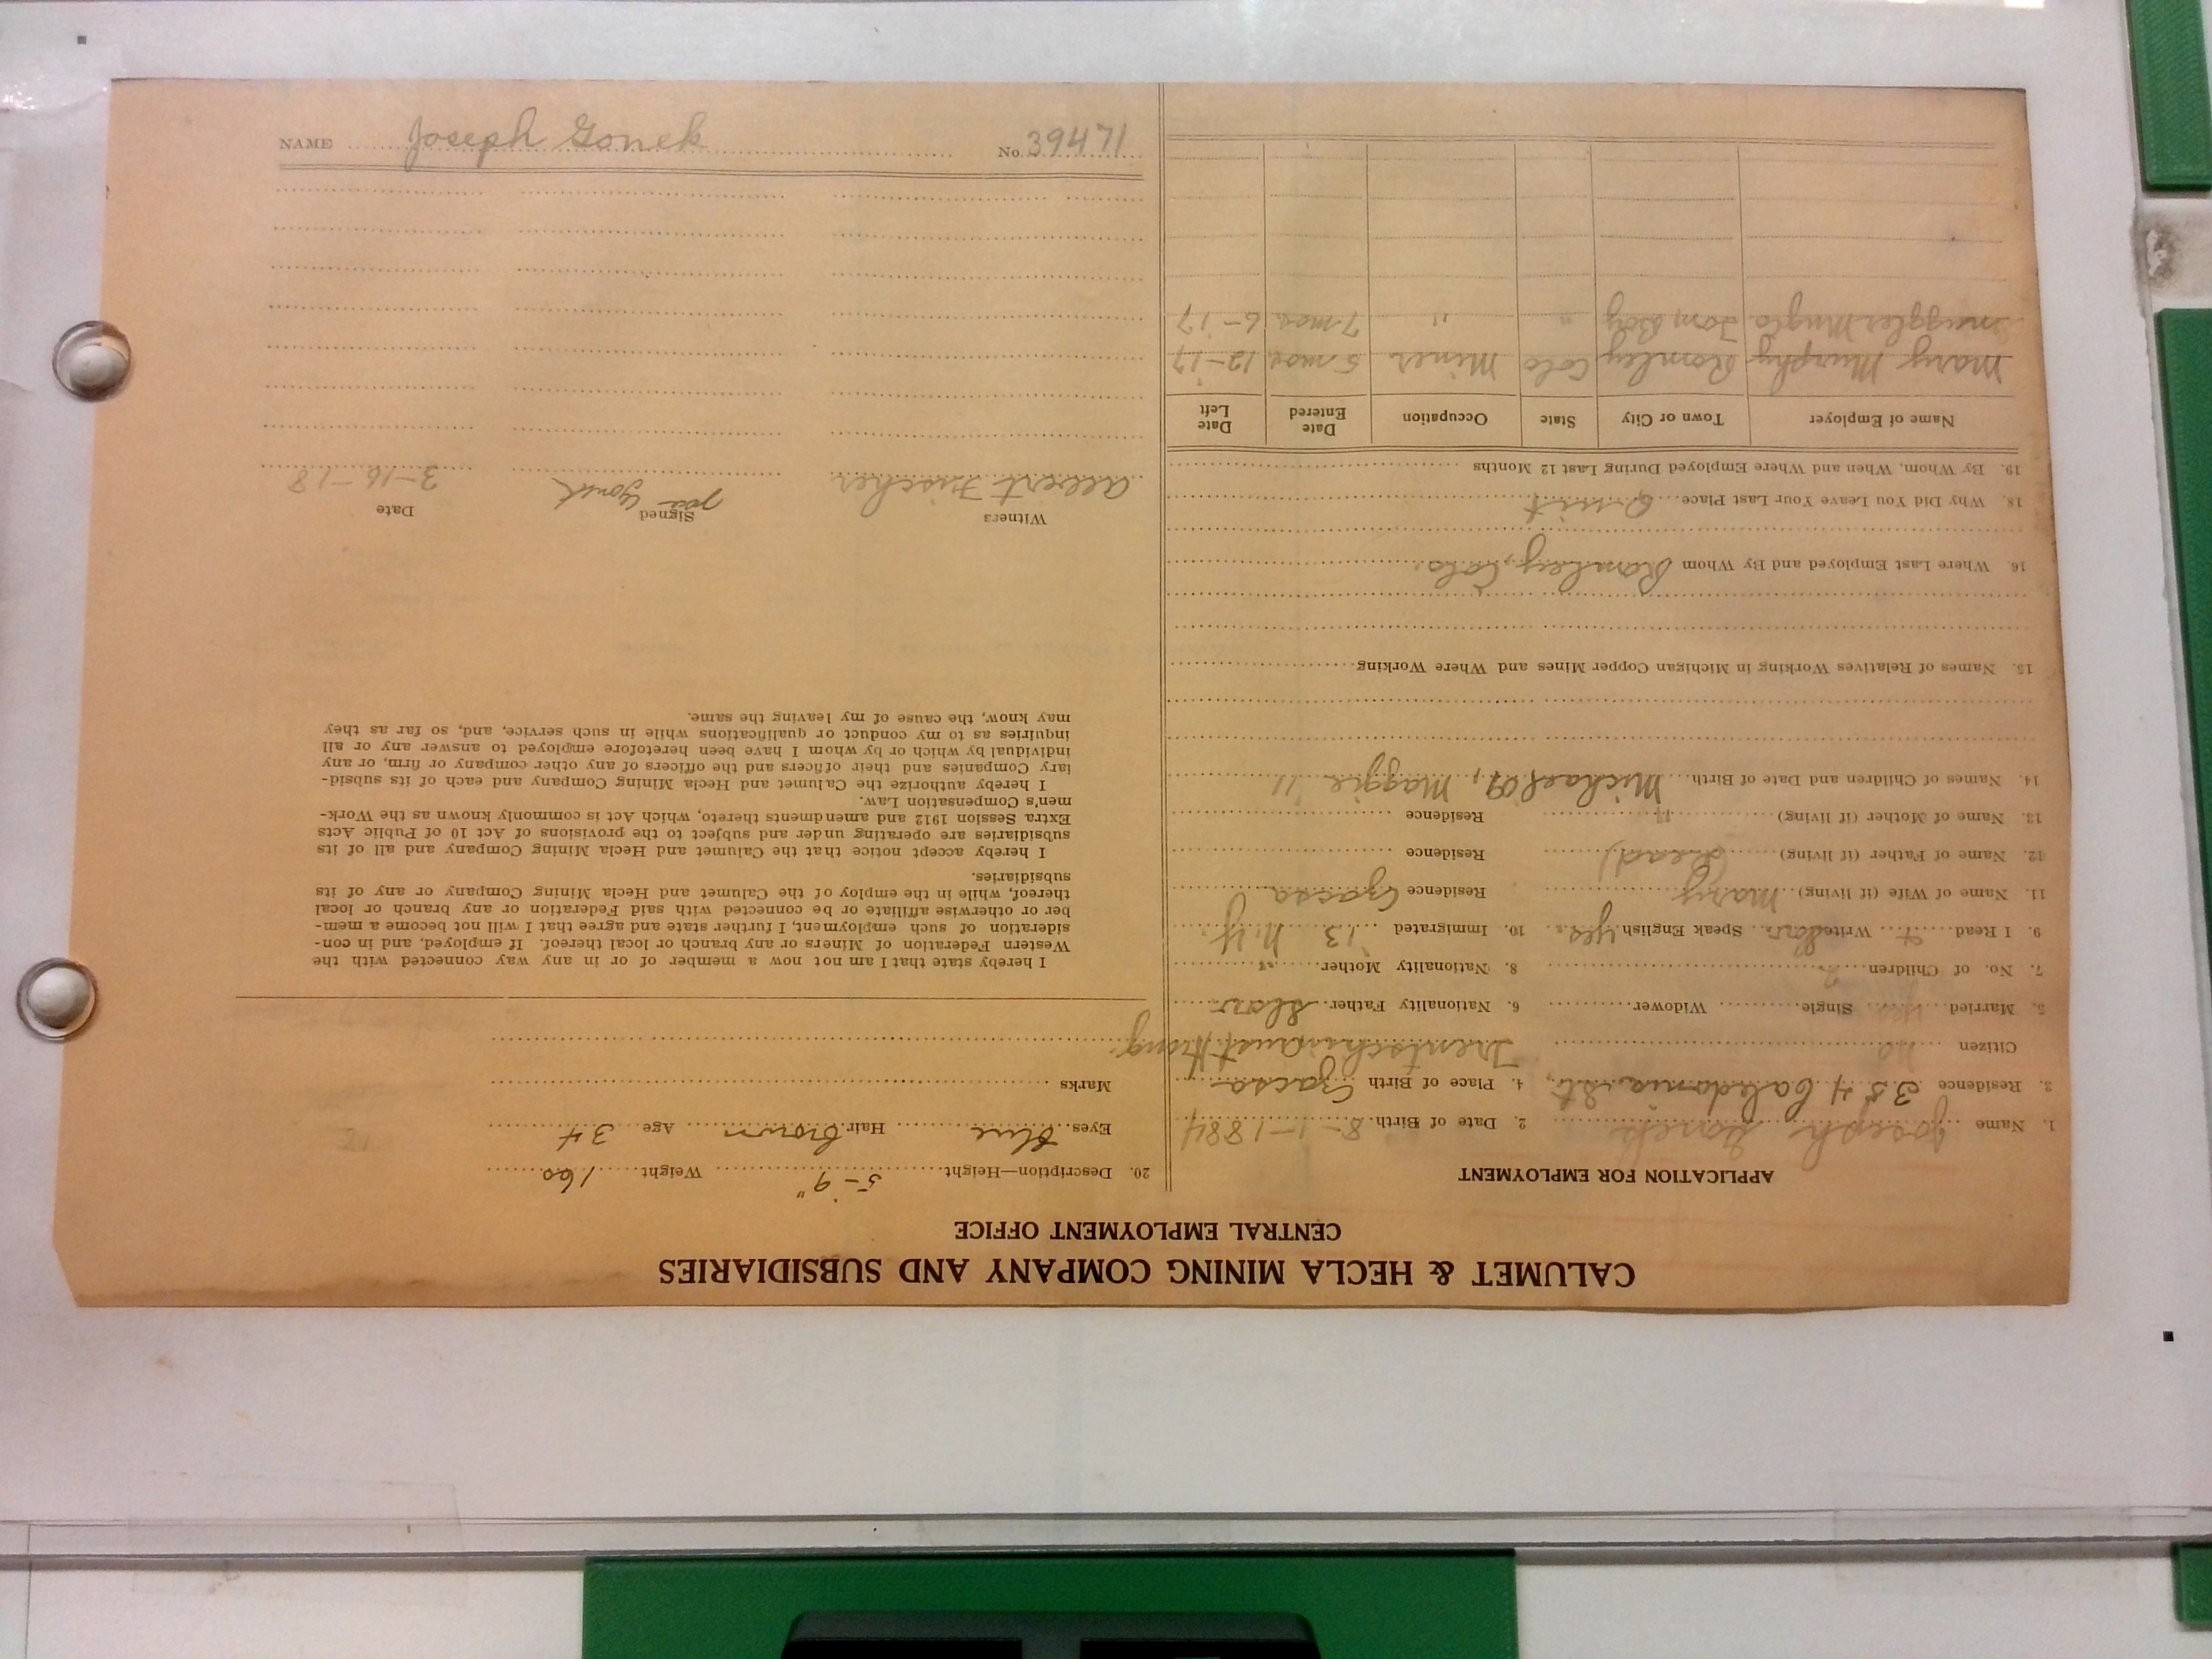 CALUMET & HECLA MINING COMPANY AND SUBSIDIARIES
CENTRAL EMPLOYMENT OFFICE
APPLICATION FOR EMPLOYMENT
1. Name Joseph Gonek 2. Date of Birth 8-1-1884
3. Residence 354 Caledonia St. 4. Place of Birth Czacsa
Citizen no Trentschin Aust Hung
5. Married yes Single Widower 6. Nationality Father Slav
7. No. of Children 2 8. Nationality Mother "
9. I Read + Write Slav. Speak English yes. 10. Immigrated '13 N.Y.
11. Name of Wife (if living) Mary Residence Czacsa
12. Name of Father (if living) (Dead) Residence
13. Name of Mother (if living) " Residence
14. Names of Children and Date of Birth Michael 09, Maggie '11
15. Names of Relatives Working in Michigan Copper Mines and Where Working
16. Where Last Employed and By Whom Romley, Colo.
18. Why Did You Leave Your Last Place Quit
19. By Whom, When and Where Employed During Last 12 Months
Name of Employer Town or City State Occupation Date Entered Date Left
Mary Murphy Romley Colo Miner 5 mos. 12-17
Smuggler Mng Co. Tom Boy " " 7 mos. 6-17
20. Description—Height 5-9" Weight 160
Eyes blue Hair brown Age 34
Marks
I hereby state that I am not now a member of or in any way connected with the
Western Federation of Miners or any branch or local thereof. If employed, and in con-
sideration of such employment, I further state and agree that I will not become a mem-
ber or otherwise affiliate or be connected with said Federation or any branch or local
thereof, while in the employ of the Calumet and Hecla Mining Company or any of its
subsidiaries.
I hereby accept notice that the Calumet and Hecla Mining Company and all of its
subsidiaries are operating under and subject to the provisions of Act 10 of Public Acts
Extra Session 1912 and amendments thereto, which Act is commonly known as the Work-
men's Compensation Law.
I hereby authorize the Calumet and Hecla Mining Company and each of its subsid-
iary Companies and their officers and the officers of any other company or firm, or any
individual by which or by whom I have been heretofore employed to answer any or all
inquiries as to my conduct or qualifications while in such service, and, so far as they
may know, the cause of my leaving the same.
Witness Signed Date
Albert Fuscher Joe Gonek 3-16-18
NAME Joseph Gonek No. 39471